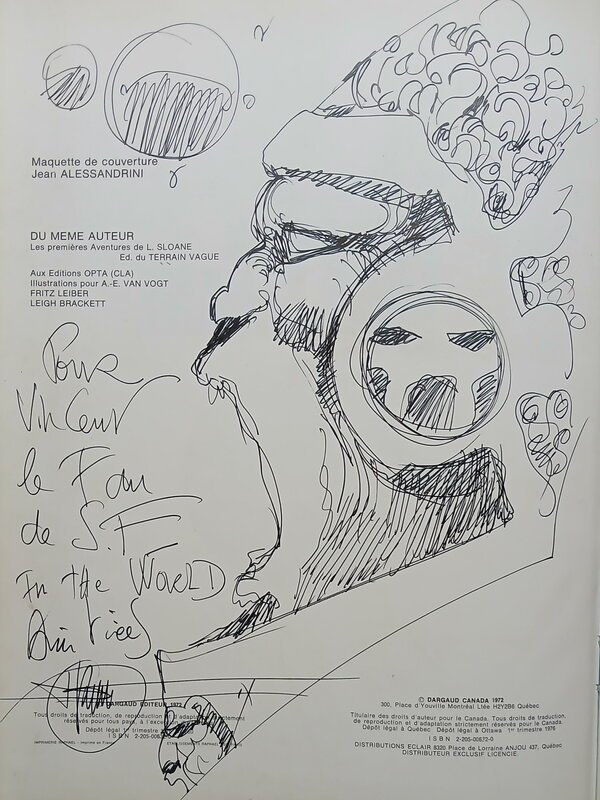 Maquette de couverture
Jean ALESSANDRINI
DU MEME AUTEUR
Les premières Aventures de L. SLOANE
Ed. du TERRAIN VAGUE
Aux Editions OPTA (CLA)
Illustrations pour A.-E. VAN VOGT
FRITZ LEIBER
LEIGH BRACKETT
Pour
Vincent
le Fan
de S.F
In the WORLD
Amitiés
DARGAUD EDITEUR 1972
Tous droits de traduction, de reproduction et d'adaptation strictement
réservés pour tous pays, à l'
Dépôt légal 1er trimestre
ISBN 2-205-006
IMPRIMERIE RAPHAEL - Imprimé en
© DARGAUD CANADA 1972
300, Place d'Youville Montréal Ltée H2Y2B6 Québec
Titulaire des droits d'auteur pour le Canada. Tous droits de traduction,
de reproduction et d'adaptation strictement réservés pour le Canada.
Dépôt légal à Québec Dépôt légal à Ottawa 1er trimestre 1976
ISBN 2-205-00672-0
DISTRIBUTIONS ECLAIR 8320 Place de Lorraine ANJOU 437, Québec
DISTRIBUTEUR EXCLUSIF LICENCIE.